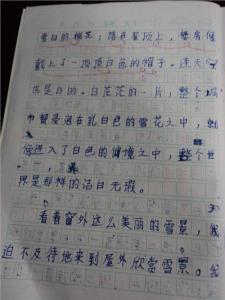 雪白的棉花；落在屋顶上，替房屋
戴上了一顶顶白色的帽子。连天
也是白的。白茫茫的一片，整个城
市都浸泡在乳白色的雪花之中，
佛进入了白色的仙境之中，整个世
界是那样的洁白无瑕。
看着窗外这么美丽的雪景，我
迫不及待地来到屋外欣赏雪景。我